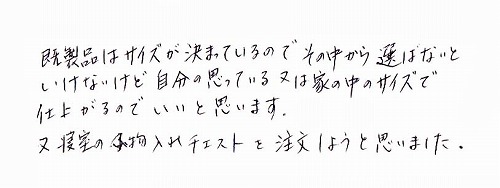 既製品はサイズが決まっているのでその中から選ばないと
いけないけど自分の思っている又は家の中のサイズで
仕上がるのでいいと思います。
又寝室の小物入れチェストを注文しようと思いました。